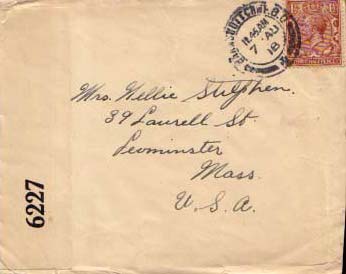 11.45AM
7 AU
18
THREE HALFPENCE
Mrs. Nellie Stilphen.
39 Laurell St.
Leominster
Mass.
U.S.A.
6227